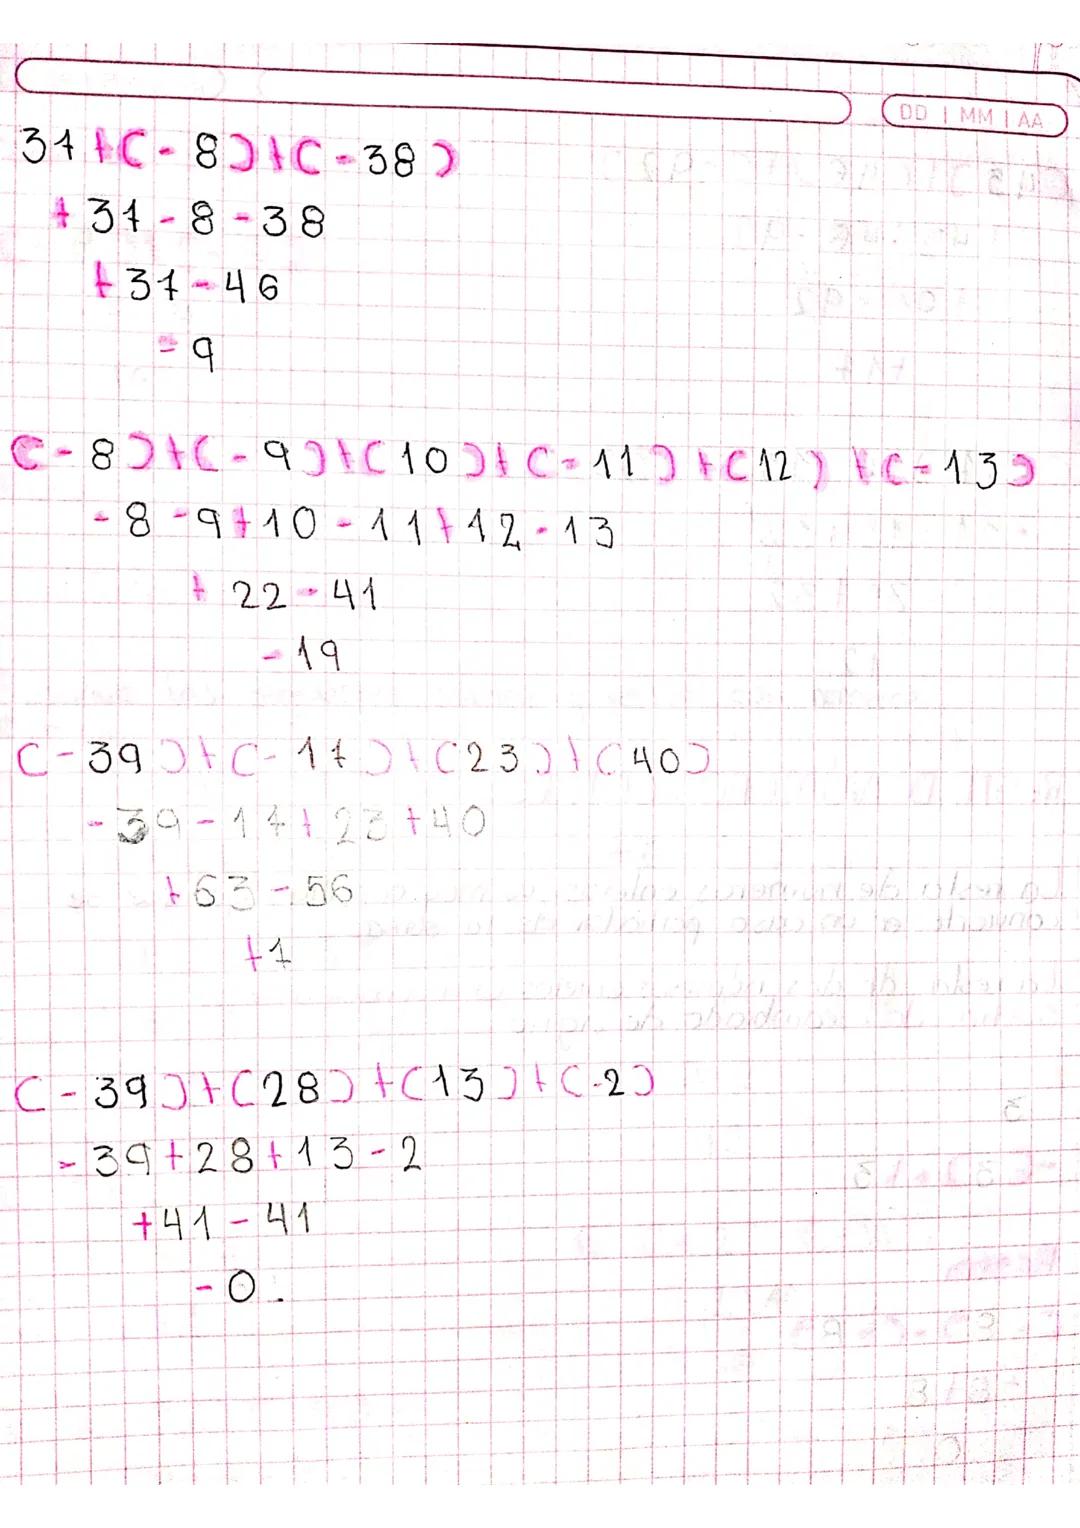 DD | MM | AA
37 + (-8) + (-38)
+37 - 8 - 38
+37 - 46
- 9
(-8) + (-9) + (10) + (-11) + (12) + (-13)
-8 - 9 + 10 - 11 + 12 - 13
+ 22 - 41
- 19
(-39) + (-17) + (23) + (40)
-39 - 17 + 23 + 40
+63 - 56
+7
(-39) + (28) + (13) + (-2)
-39 + 28 + 13 - 2
+41 - 41
- 0.